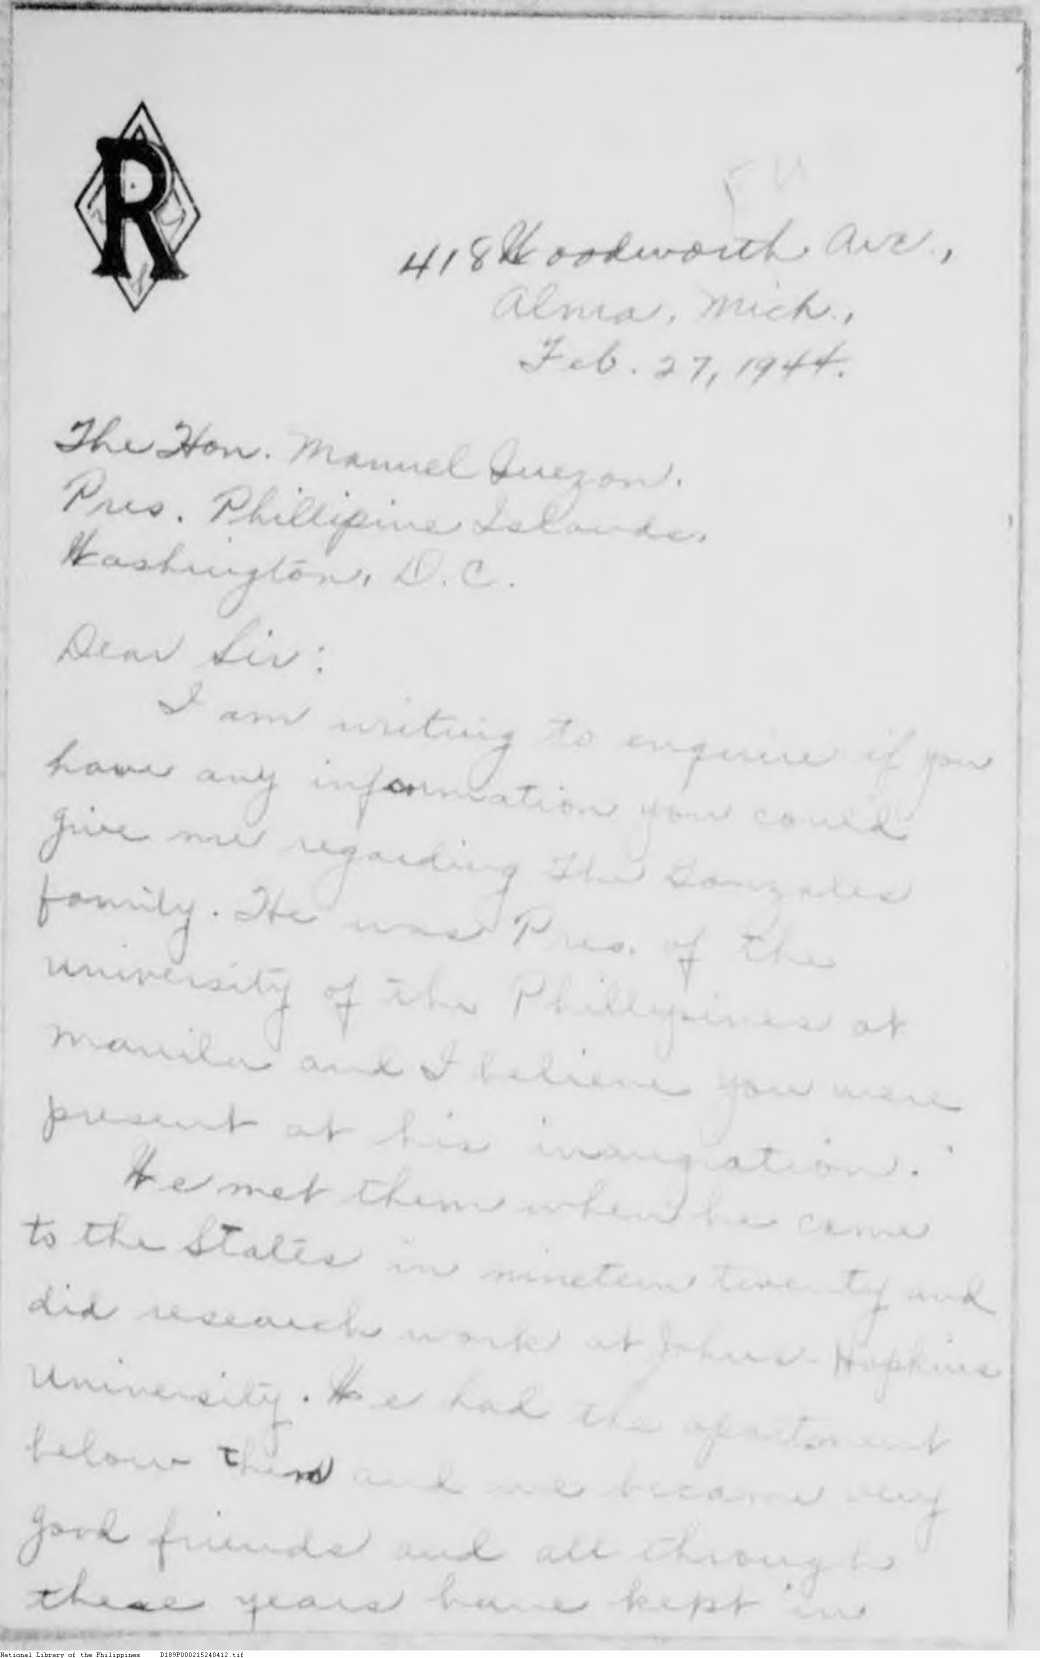 R
418 Woodworth Ave.,
Alma, Mich.,
Feb. 27, 1944.
The Hon. Manuel Quezon.
Pres. Phillipine Islands.
Washington, D.C.
Dear Sir:
I am writing to enquire if you
have any information you could
give me regarding the Gonzales
family. He was Pres. of the
University of the Phillypines at
Manila and I believe you were
present at his inaugration.
We met them when he came
to the States in nineteen twenty and
did research work at Johns-Hopkins
University. We had the apartment
below them and we became very
good friends and all through
these years have kept in
National Library of the Philippines D189P000215240412.tif